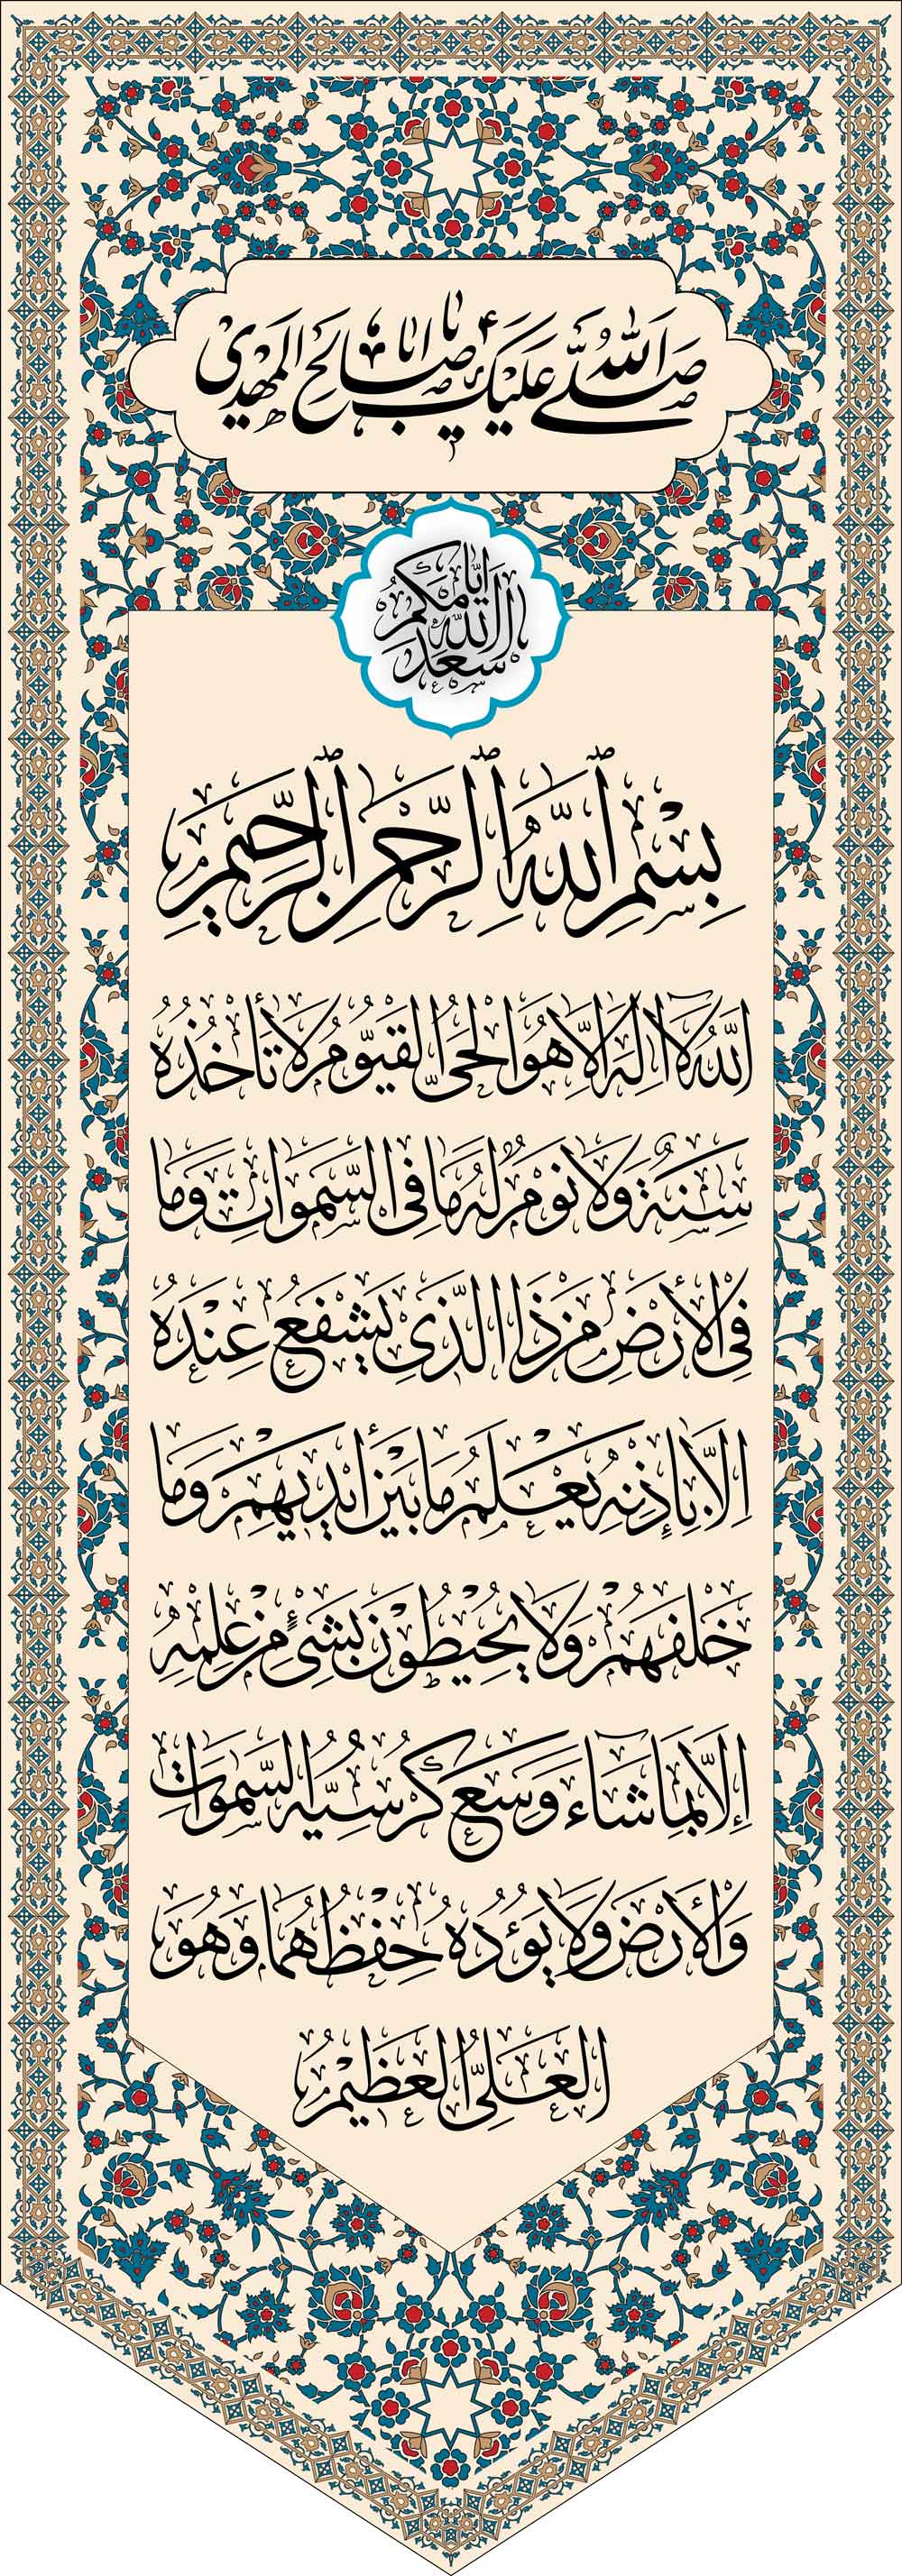 صلی الله علیک یا ابا صالح المهدی
اسعد الله ایامکم
بِسْمِ ٱللَّهِ ٱلرَّحْمٰنِ ٱلرَّحِيمِ
اَللّٰهُ لَا اِلٰهَ اِلَّا هُوَ الْحَىُّ الْقَيُّومُ لَا تَأْخُذُهُ
سِنَةٌ وَلَا نَوْمٌ لَهُ مَا فِى السَّمٰوَاتِ وَمَا
فِى الْأَرْضِ مَنْ ذَا الَّذِى يَشْفَعُ عِنْدَهُ
اِلَّا بِإِذْنِهِ يَعْلَمُ مَا بَيْنَ أَيْدِيهِمْ وَمَا
خَلْفَهُمْ وَلَا يُحِيطُونَ بِشَىْءٍ مِنْ عِلْمِهِ
اِلَّا بِمَا شَاءَ وَسِعَ كُرْسِيُّهُ السَّمٰوَاتِ
وَالْأَرْضَ وَلَا يَؤُدُهُ حِفْظُهُمَا وَهُوَ
الْعَلِىُّ الْعَظِيمُ